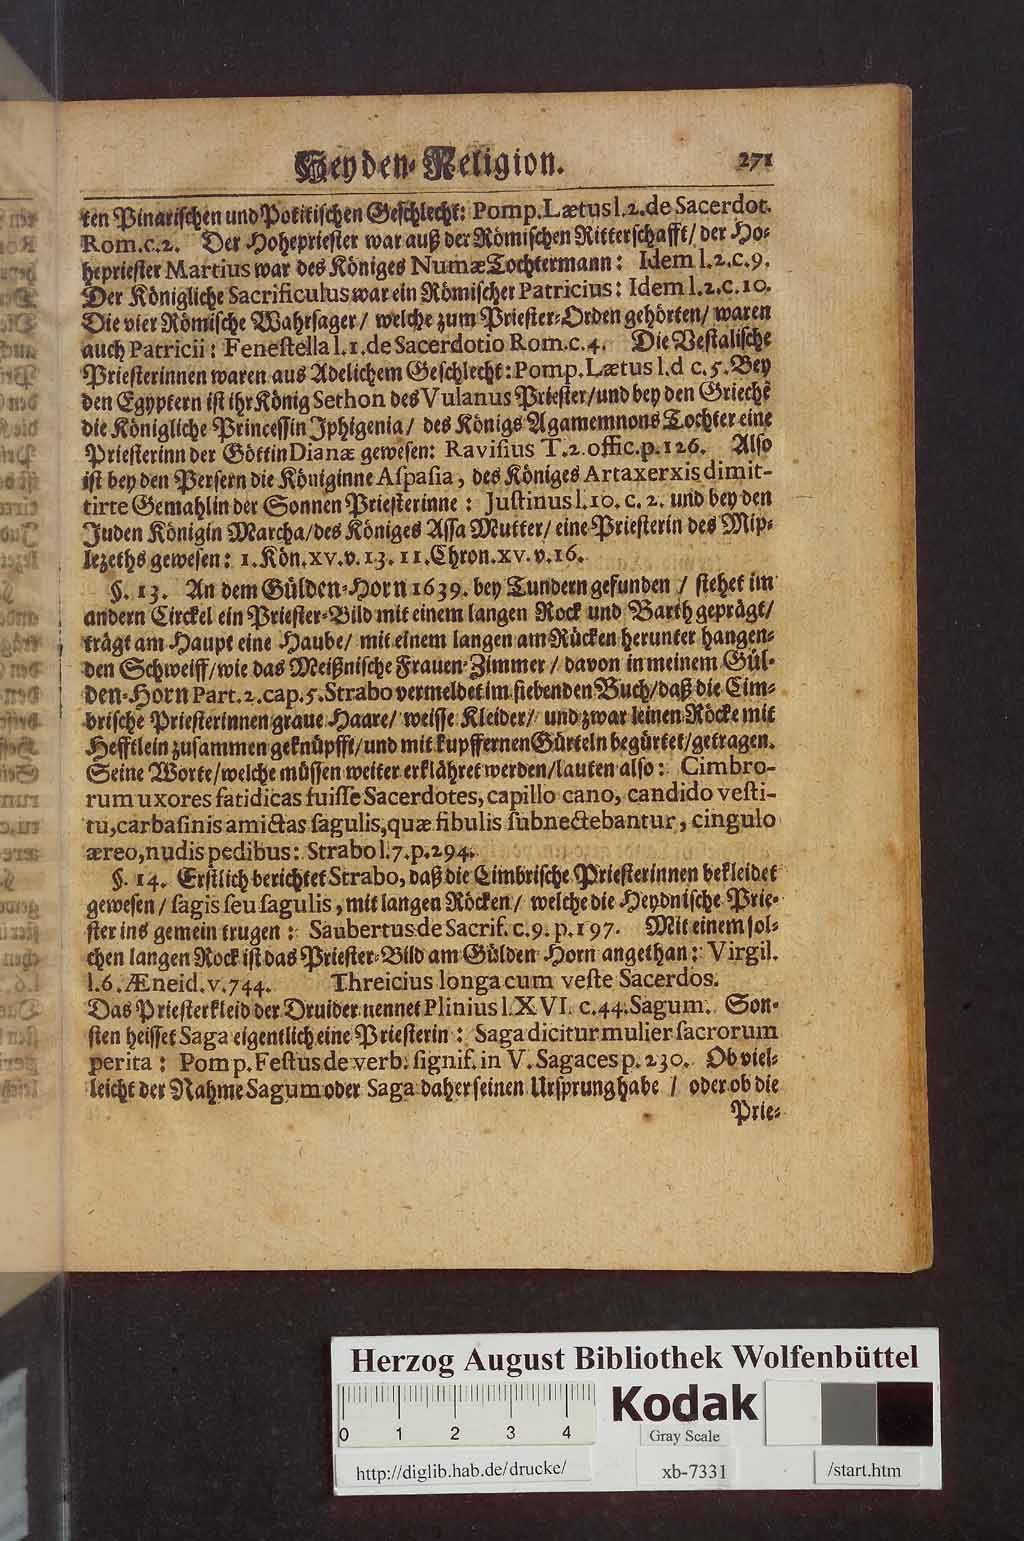 Heyden-Religion. 271
ten Pinarischen und Potitischen Geschlecht: Pomp. Lætus l. 2. de Sacerdot.
Rom. c. 2. Der Hohepriester war auß der Römischen Ritterschafft/ der Ho-
hepriester Martius war des Königes Numæ Tochtermann: Idem l. 2. c. 9.
Der Königliche Sacrificulus war ein Römischer Patricius: Idem l. 2. c. 10.
Die vier Römische Wahrsager/ welche zum Priester-Orden gehörten/ waren
auch Patricii: Fenestella l. 1. de Sacerdotio Rom. c. 4. Die Vestalische
Priesterinnen waren aus Adelichem Geschlecht: Pomp. Lætus l. d c. 5. Bey
den Egyptern ist ihr König Sethon des Vulanus Priester/ und bey den Griechē
die Königliche Princessin Iphigenia/ des Königs Agamemnons Tochter eine
Priesterinn der Göttin Dianæ gewesen: Ravisius T. 2. offic. p. 126. Also
ist bey den Persern die Königinne Aspasia, des Königes Artaxerxis dimit-
tirte Gemahlin der Sonnen Priesterinne: Justinus l. 10. c. 2. und bey den
Juden Königin Marcha/ des Königes Assa Mutter/ eine Priesterin des Mip-
lezeths gewesen: 1. Kön. xv. v. 13. 11. Chron. xv. v. 16.
§. 13. An dem Gülden-Horn 1639. bey Tundern gefunden / stehet im
andern Circkel ein Priester-Bild mit einem langen Rock und Barth geprägt/
trägt am Haupt eine Haube/ mit einem langen am Rücken herunter hangen-
den Schweiff/ wie das Meißnische Frauen-Zimmer / davon in meinem Gül-
den-Horn Part. 2. cap. 5. Strabo vermeldet im siebenden Buch/ daß die Cim-
brische Priesterinnen graue Haare/ weisse Kleider/ und zwar leinen Röcke mit
Hefftlein zusammen geknüpfft/ und mit kupffernen Gürteln begürtet/ getragen.
Seine Worte/ welche müssen weiter erklähret werden/ lauten also: Cimbro-
rum uxores fatidicas fuisse Sacerdotes, capillo cano, candido vesti-
tu, carbasinis amictas sagulis, quæ fibulis subnectebantur, cingulo
æreo, nudis pedibus: Strabo l. 7. p. 294.
§. 14. Erstlich berichtet Strabo, daß die Cimbrische Priesterinnen bekleidet
gewesen/ sagis seu sagulis, mit langen Röcken/ welche die Heydnische Prie-
ster ins gemein trugen: Saubertus de Sacrif. c. 9. p. 197. Mit einem sol-
chen langen Rock ist das Priester-Bild am Gülden Horn angethan: Virgil.
l. 6. Æneid. v. 744. Threicius longa cum veste Sacerdos.
Das Priesterkleid der Druider nennet Plinius l. XVI. c. 44. Sagum. Son-
sten heisset Saga eigentlich eine Priesterin: Saga dicitur mulier sacrorum
perita: Pomp. Festus de verb. signif. in V. Sagaces p. 230. Ob viel-
leicht der Nahme Sagum oder Saga daher seinen Ursprung habe / oder ob die
Prie-
Herzog August Bibliothek Wolfenbüttel
0 1 2 3 4
Kodak
Gray Scale
http://diglib.hab.de/drucke/ xb-7331 /start.htm